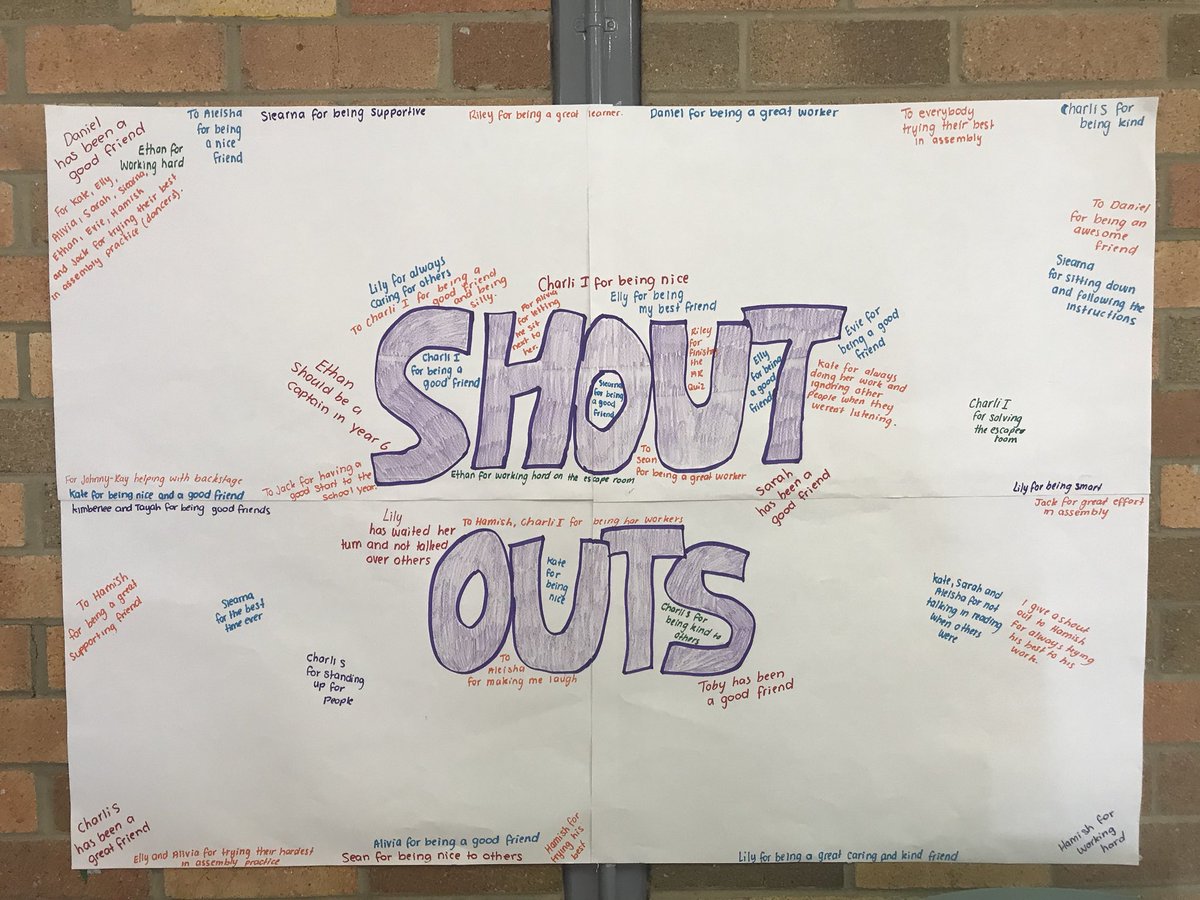 Daniel
has been a
good friend
Ethan for
Working hard
To Aleisha
for being
a nice
friend
Siearna for being supportive
Riley for being a great learner.
Daniel for being a great worker
To everybody
trying their best
in assembly
Charli S for
being kind
For Kate, Elly,
Alivia, Sarah, Siearna,
Ethan, Evie, Hamish
and Jack for trying their best
in assembly practice (dancers).
To Daniel
for being an
awesome
friend
Siearna
for sitting down
and following the
instructions
Lily for always
caring for others
To Charli I for being a
good friend
and being
silly.
Charli I for being nice
For Alivia
for letting
me sit
next to
her.
Elly for being
my best friend
SHOUT
Charli I
for being a
good friend
Siearna
for being
a good
friend
Riley
for
finishing
the
AR
Quiz
Elly
for being
a good
friend
Evie for
being a good
friend
Kate for always
doing her work and
ignoring other
people when they
weren't listening.
Ethan
Should be a
captain in year 6
Charli I
for solving
the escape
room
For Johnny-Kay helping with backstage
Kate for being nice and a good friend
To Jack for having a
good start to the
school year.
Ethan for working hard on the escape room
To
Sean
for being a great worker
Sarah
has been a
good friend
Lily for being smart
Jack for great effort
in assembly
Kimberlee and Tayah for being good friends
Lily
has waited her
turn and not talked
over others
To Hamish, Charli I for being har workers
OUTS
Kate
for
being
nice
Charli S for
being kind to
others
To Hamish
for being a great
supporting friend
Siearna
for the best
time ever
Kate, Sarah and
Aleisha for not
talking in reading
when others
were
I give a shout
out to Hamish
for always trying
his best to his
work.
Charli S
for standing
up for
People
To
Aleisha
for making me laugh
Toby has been
a good friend
Charli S
has been a
great friend
Elly and Alivia for trying their hardest
in assembly practice
Alivia for being a good friend
Sean for being nice to others
Hamish for
trying his
best
Lily for being a great caring and kind friend
Hamish for
working
hard